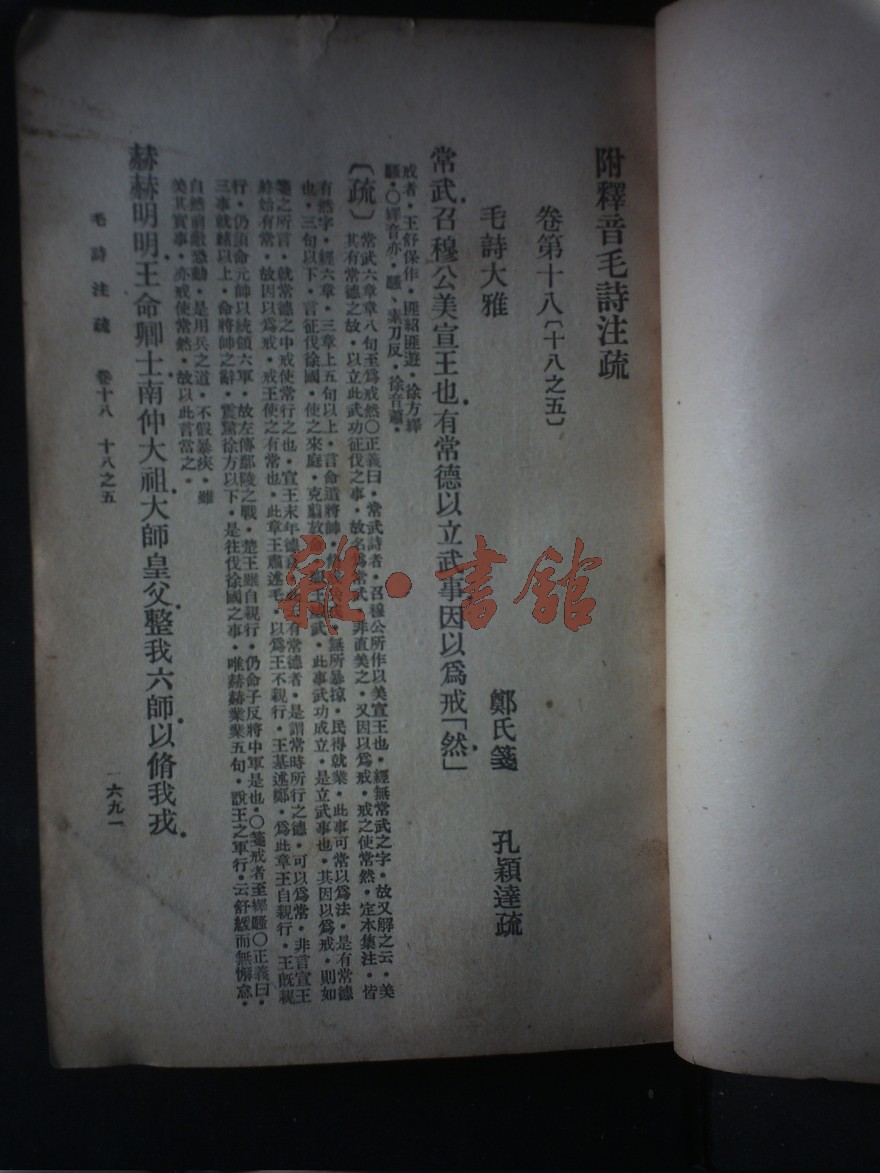 附釋音毛詩注疏
卷第十八〔十八之五〕
毛詩大雅
鄭氏箋 孔穎達疏
常武召穆公美宣王也有常德以立武事因以爲戒「然」
戒者・王舒保作・匪紹匪遊・徐方繹
騷・〇繹音亦・騷、素刀反・徐音蕭・
〔疏〕常武六章章八句至爲戒然〇正義曰・常武詩者・召穆公所作以美宣王也・經無常武之字・故又解之云・美
其有常德之故・以立此武功征伐之事・故名爲常武・非直美之・又因以爲戒・戒之使常然・定本集注・皆
有然字・經六章・三章上五句以上・言命遣將帥・無所暴掠・民得就業・此事可常以爲法・是有常德
也・三句以下・言征伐徐國・使之來庭・克翦放命・王武・此事武功成立・是立武事也・其因以爲戒・則如
箋之所言・就常德之中戒使常行之也・宣王末年德有常德者・是謂常時所行之德・可以爲常・非言宣王
終始有常・故因以爲戒・戒王使之有常也・此章王肅述毛・以爲王不親行・王基述鄭・爲此章王自親行・王旣親
行・仍須命元帥以統領六軍・故左傳鄢陵之戰・楚王雖自親行・仍命子反將中軍是也・〇箋戒者至繹騷〇正義曰・
三事就緒以上・命將帥之辭・震驚徐方以下・是往伐徐國之事・唯赫赫業業五句・說王之軍行・云舒緩而無懈怠・
自然前敵恐動・是用兵之道・不假暴疾・雖
美其實事・亦戒使常然・故以此言當之・
赫赫明明王命卿士南仲大祖大師皇父整我六師以脩我戎
毛詩注疏 卷十八 十八之五
一六九一
雜・書館